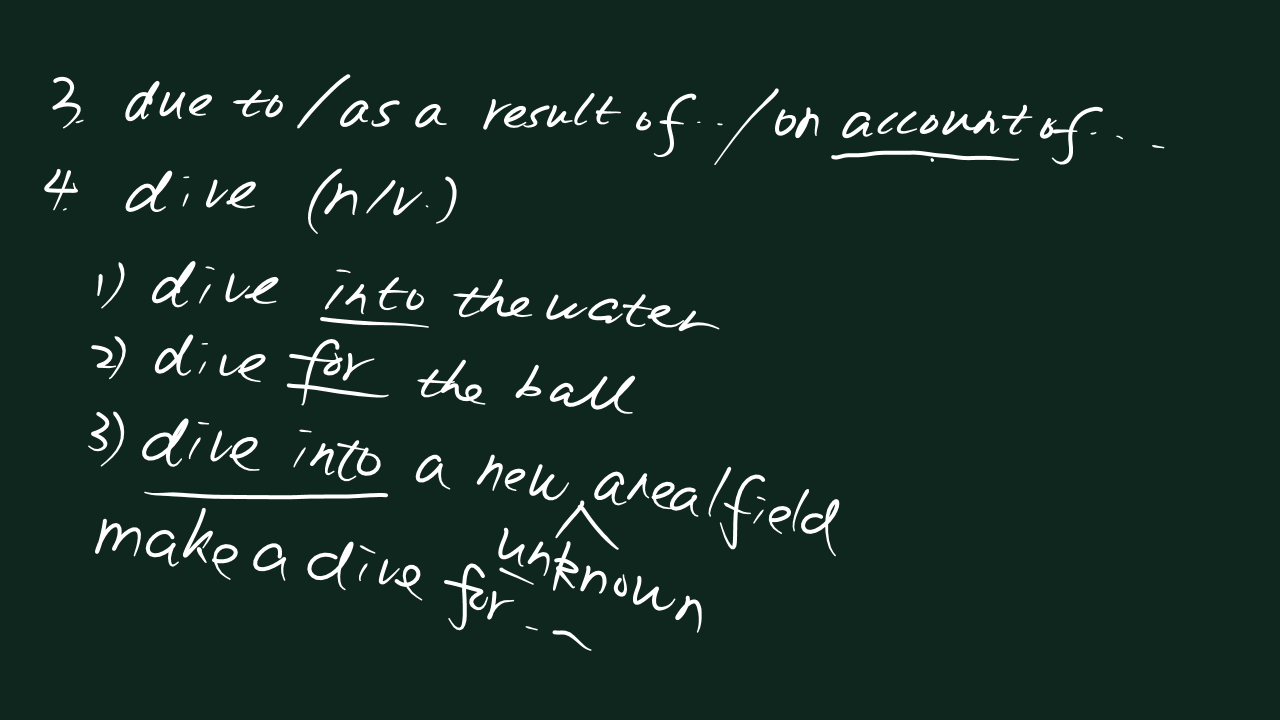 3. due to / as a result of... / on account of...
4. dive (n/v.)
1) dive into the water
2) dive for the ball
3) dive into a new area/field
unknown
make a dive for...